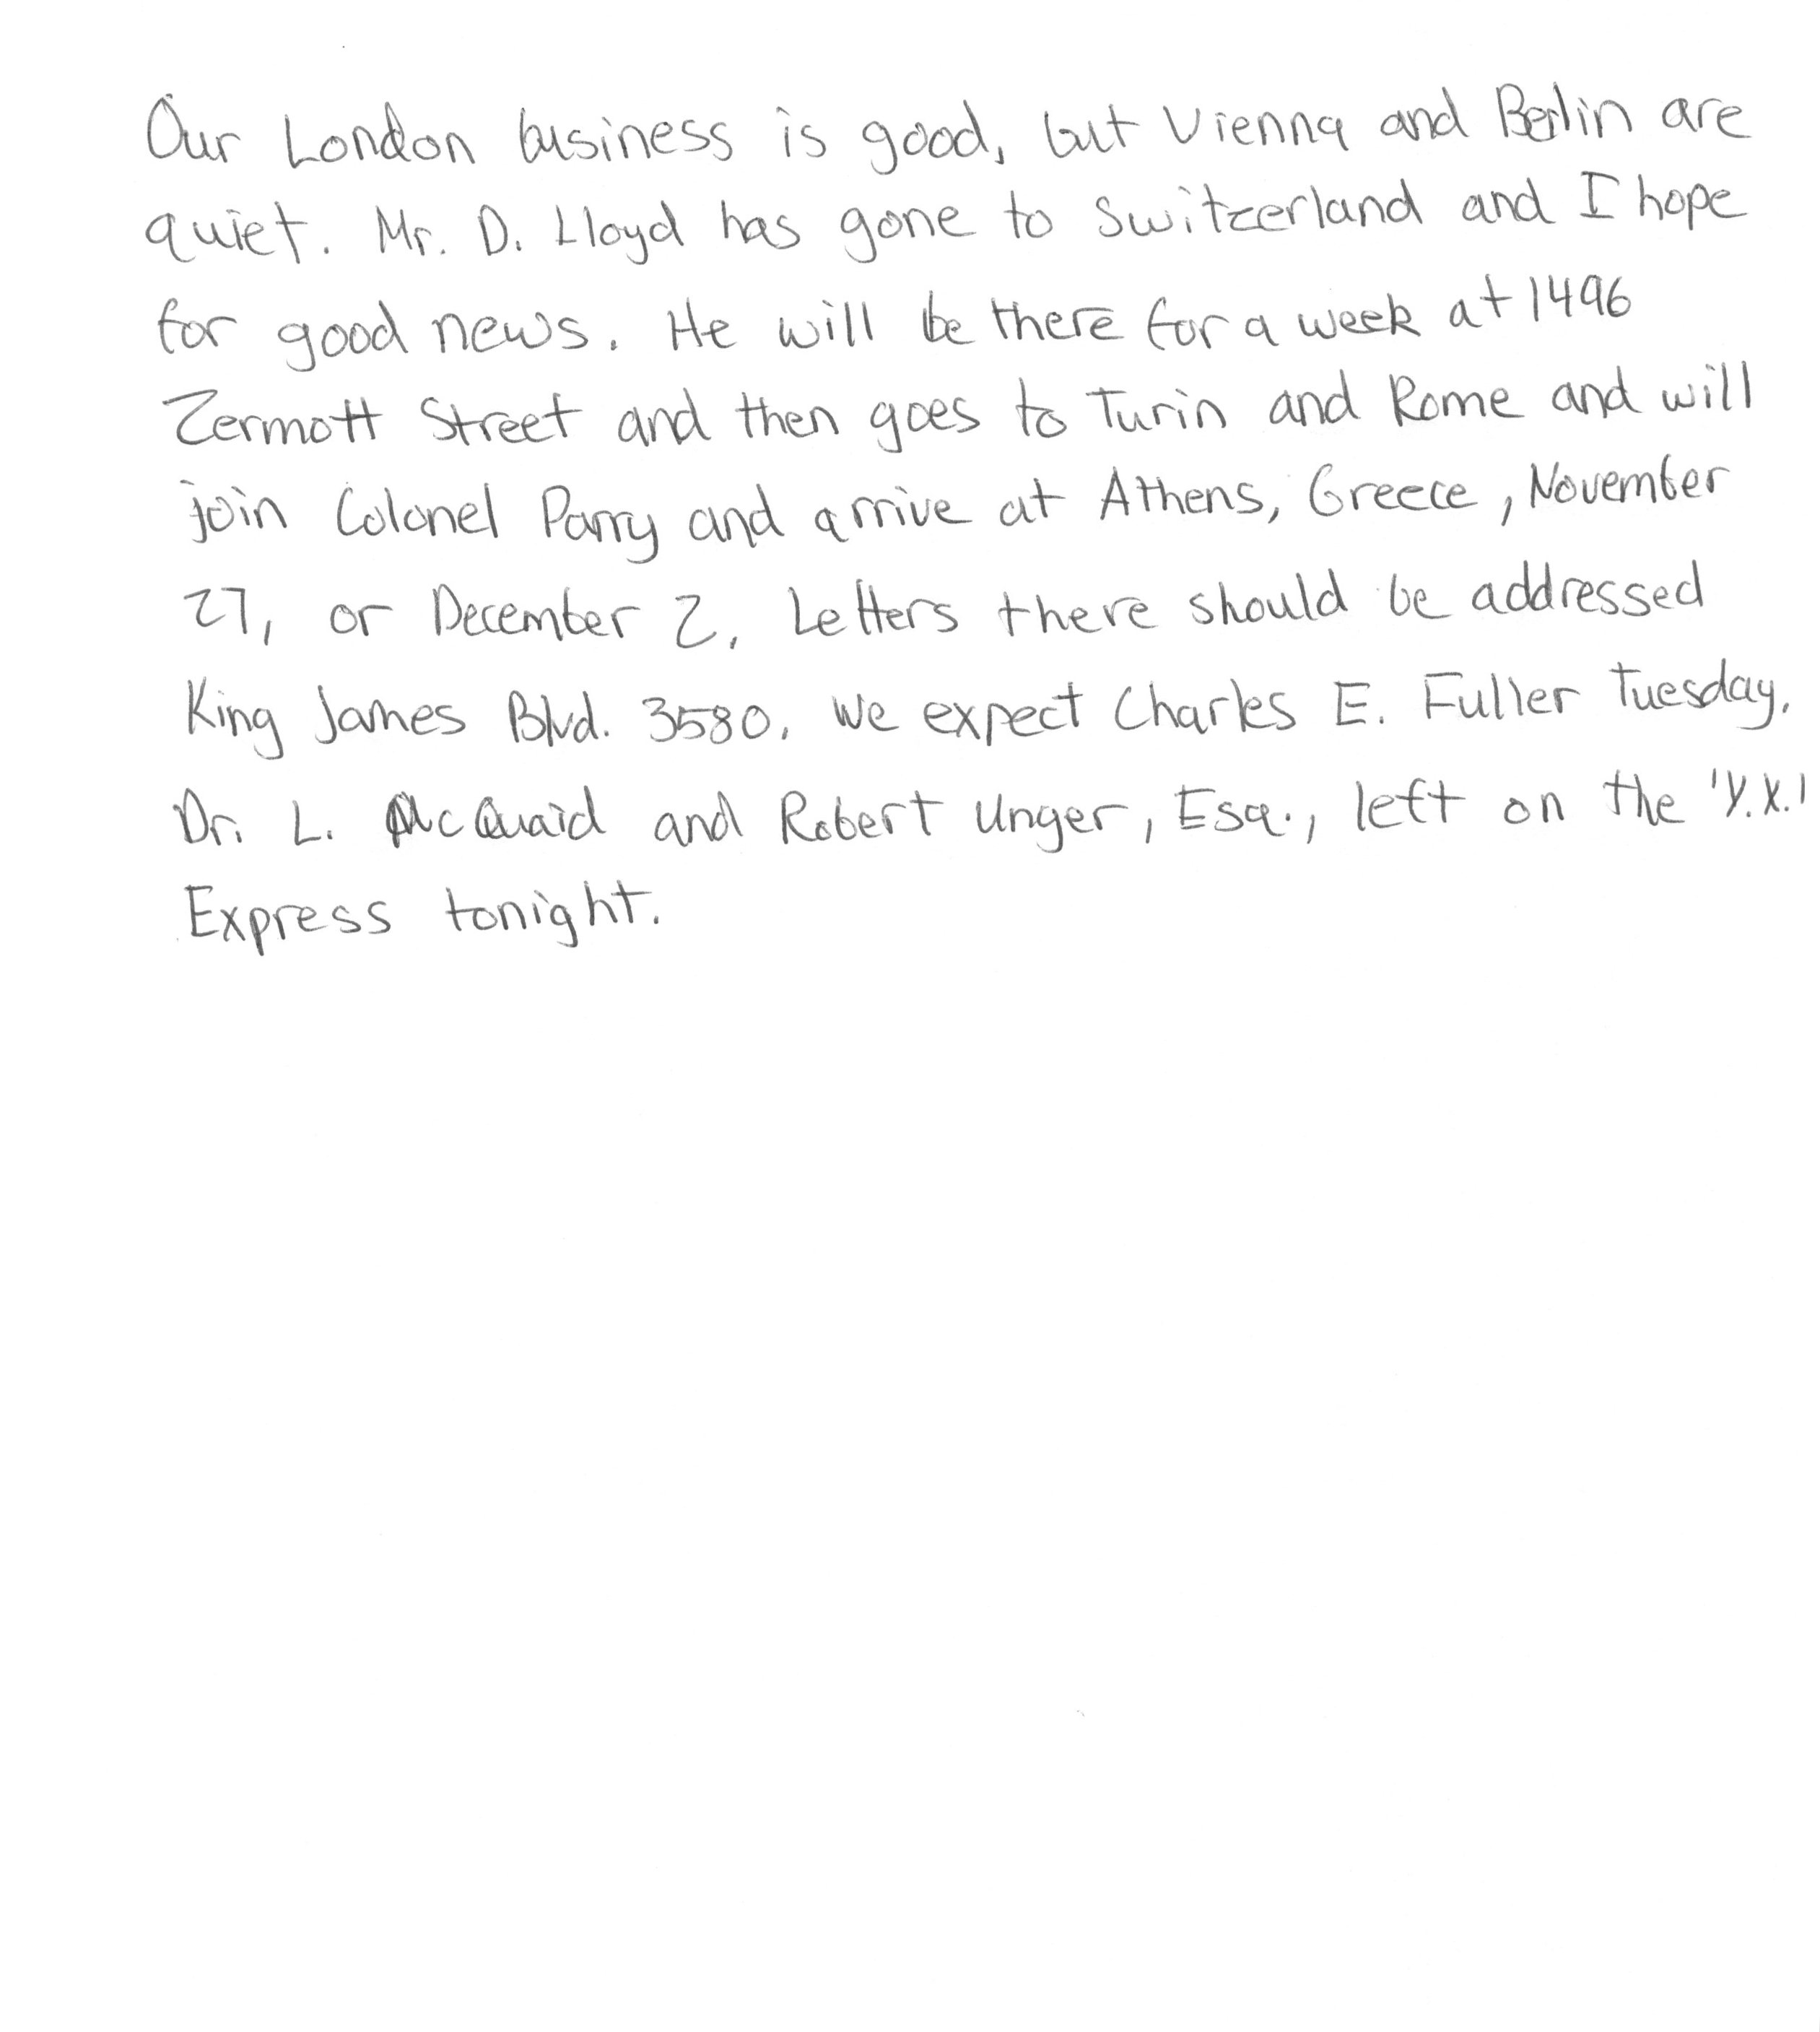 Our London business is good, but Vienna and Berlin are
quiet. Mr. D. Lloyd has gone to Switzerland and I hope
for good news. He will be there for a week at 1496
Zermott Street and then goes to Turin and Rome and will
join Colonel Parry and arrive at Athens, Greece, November
27, or December 2. Letters there should be addressed
King James Blvd. 3580. We expect Charles E. Fuller Tuesday.
Dr. L. McQuaid and Robert Unger, Esq., left on the 'Y.X.'
Express tonight.